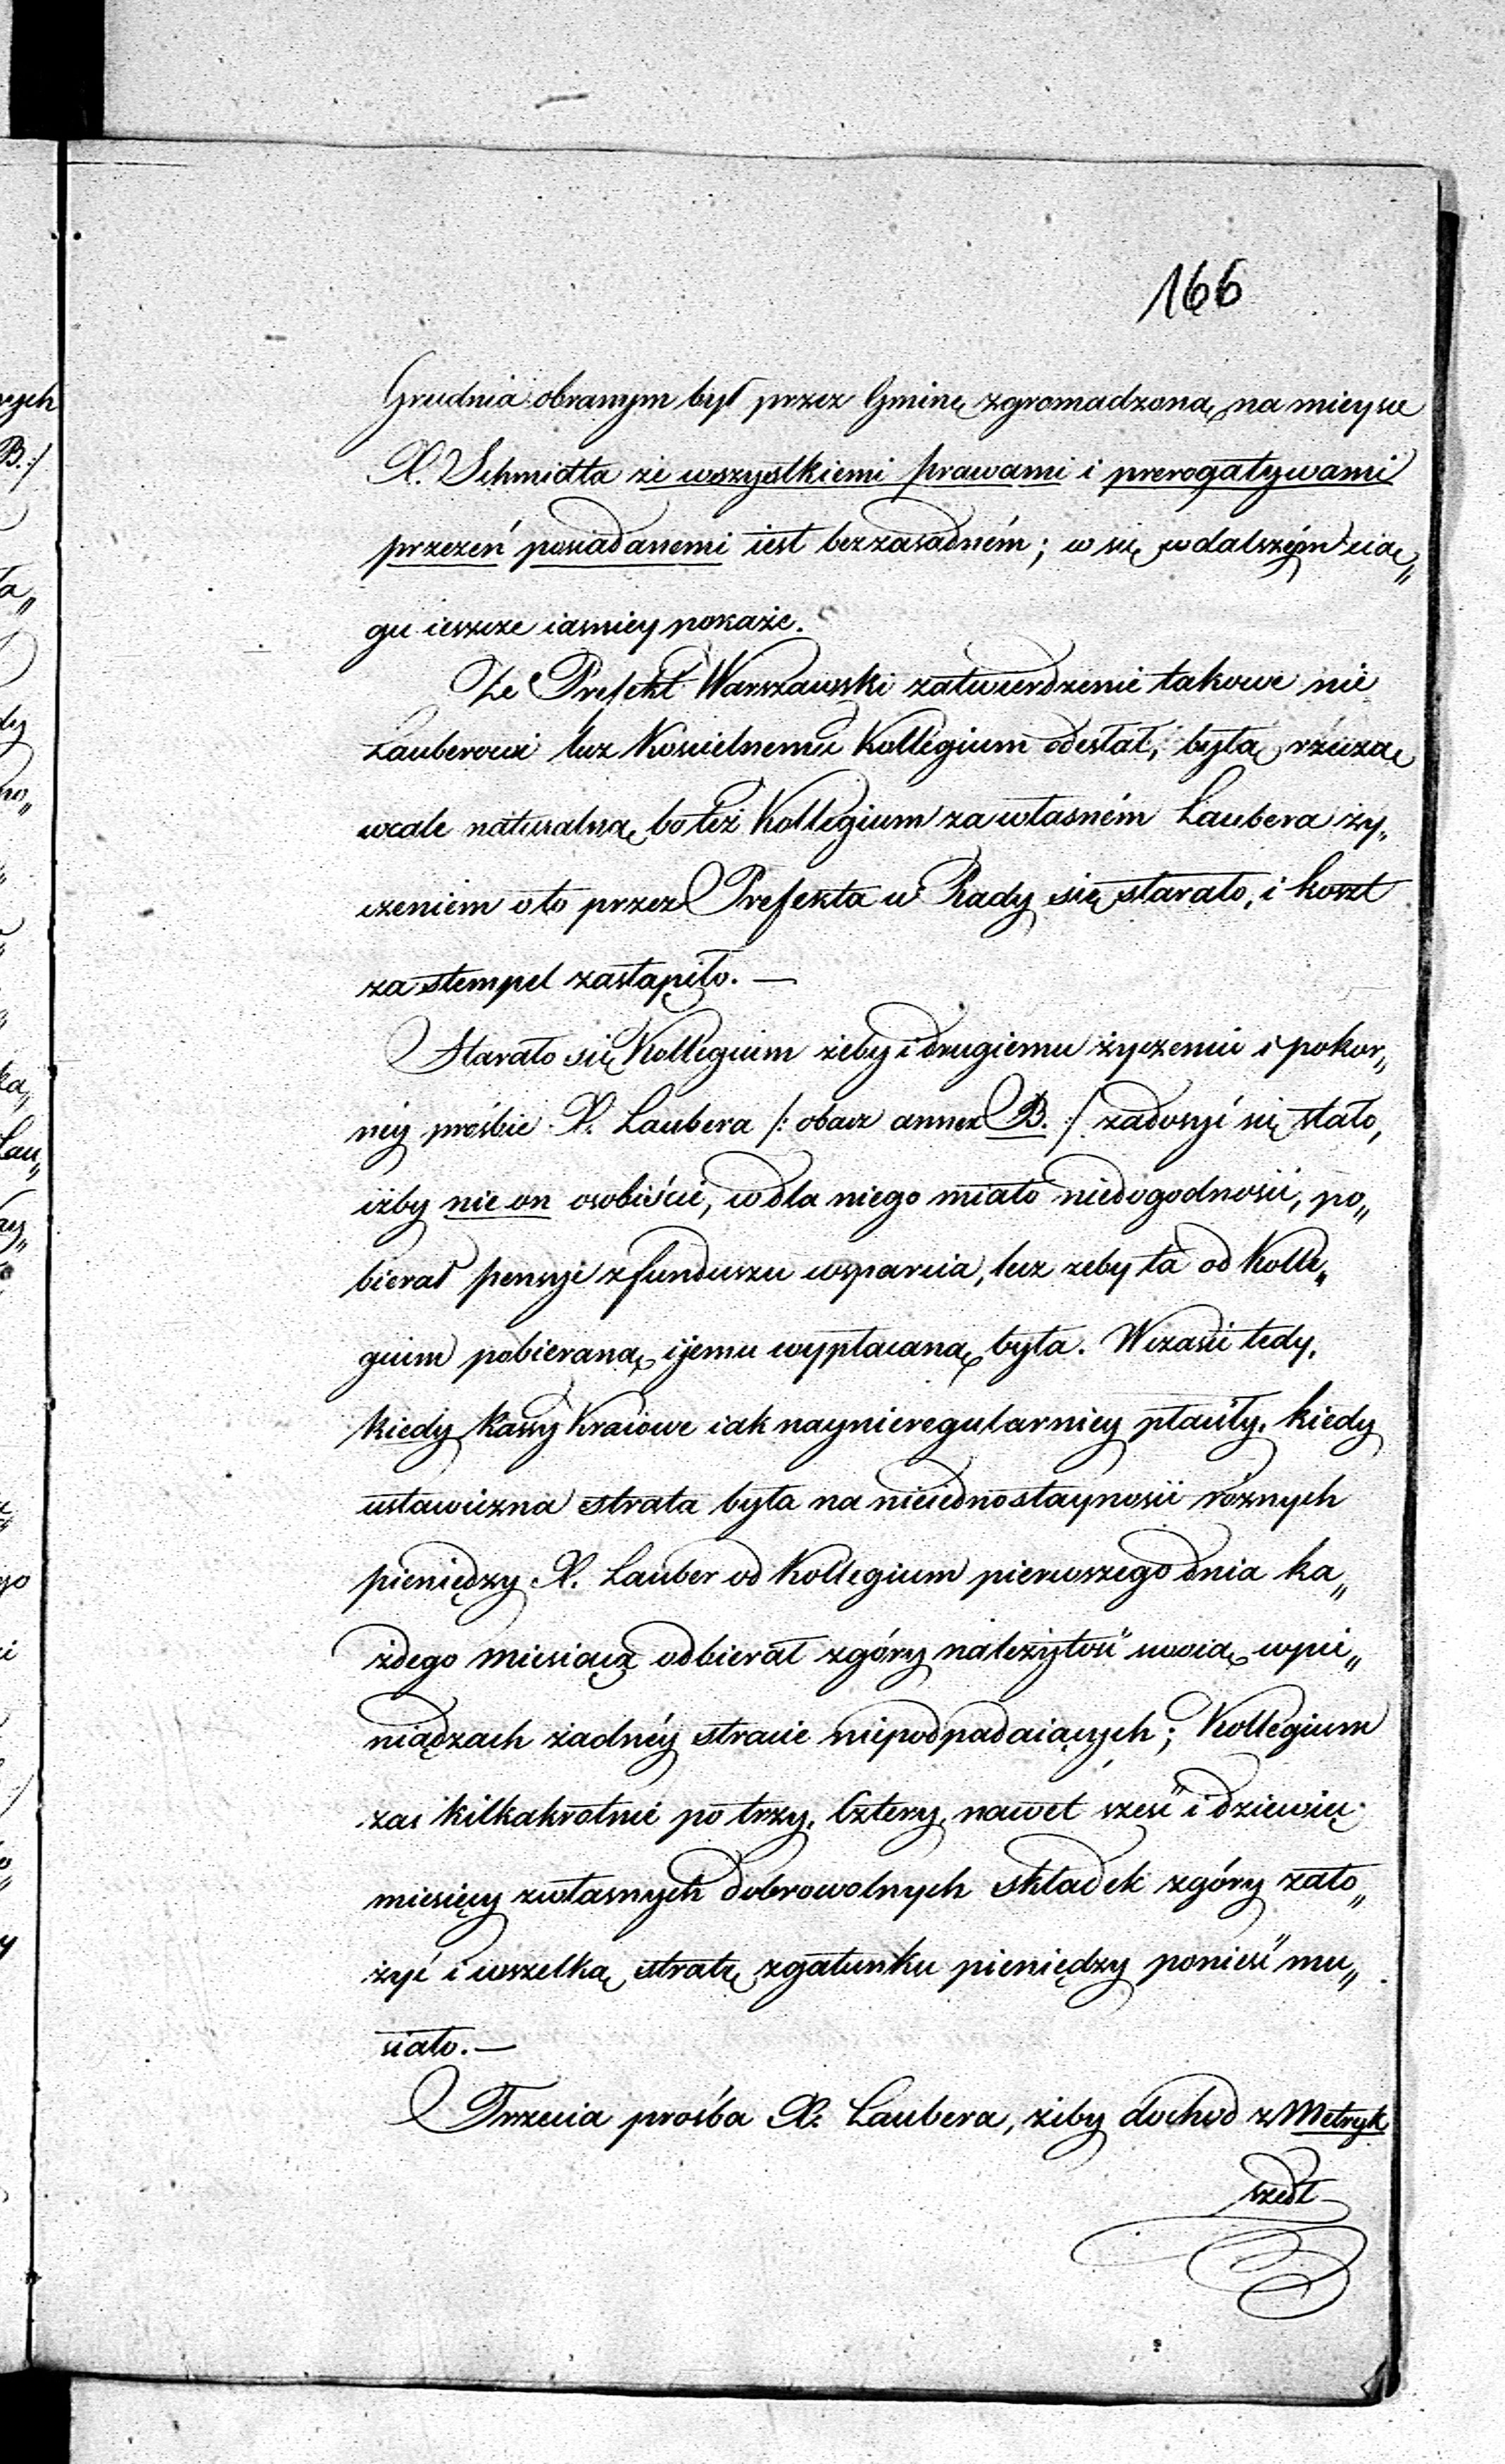 166
Grudnia obranym był przez Gminę zgromadzoną na mieysce
X. Schmidta ze wszystkiemi prawami i prerogatywami
przezeń posiadanemi iest bezzasadném; co się w dalszém cią„
gu ieszcze iasniey pokaże.
Że Prefekt Warszawski zatwierdzenie takowe nie
Lauberowi lecz Koscielnemu Kollegium odesłał, byłą rzeczą
wcale naturalną, bo też Kollegium za własném Laubera ży„
czeniem o to przez Prefekta u Rady się starało, i koszt
za stempel zastąpiło. —
Starało się Kollegium żeby i drugiemu życzeniu i pokor„
néy prośbie X. Laubera /: obacz annex B. :/ zadosyć się stało,
iżby nie on osobiście, co dla niego miało niedogodności, po„
bierał pensye z funduszu wsparcia, lecz zeby ta od Kolle„
gium pobieraną, i jemu wypłacaną była. W czasie tedy,
kiedy Kassy Kraiowe iak naynieregularniey płaciły, kiedy
ustawiczna strata była na nieiednostayności róznych
pieniędzy X. Lauber od Kollegium pierwszego dnia ka„
żdego miesiąca odbierał z góry należytość swoią w pie„
niądzach żadnéy stracie niepodpadaiących; Kollegium
zas kilkakrotnie po trzy, cztery, nawet sześć i dziewięć
miesięcy z własnych dobrowolnych składek z góry zało„
żyć i wszelką stratę z gatunku pieniędzy ponieść mu„
siało. —
Trzecia prośba X. Laubera, żeby dochod z Metryk
szedł
rych
B. :/
ła„
dy
no„
ka„
Lau„
ay„
go
i
y